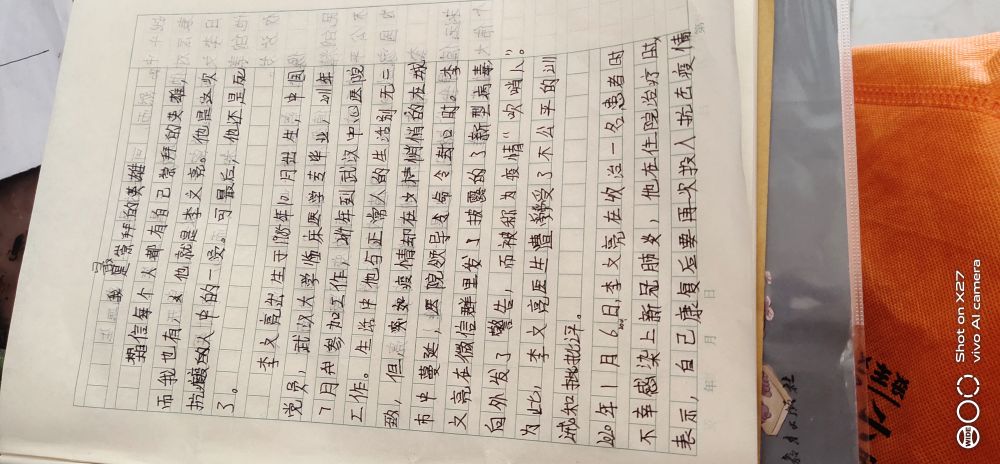 我最崇拜的英雄
相信每个人都有自己崇拜的英雄,
而我也有,他就是李文亮。他是这次
抗疫的人中的一员。可最后,他还是死
了。
李文亮出生于1985年10月出生,中国
党员,武汉大学临床医学专毕业,2011年
7月参加工作,2014年到武汉中心医院
工作。生活中他与正常人的生活别无二
致,但突如疫情却在悄悄的在城
市中蔓延,医院领导支命令封口时。李
文亮在微信群里发了披露的了新型病毒
向外发了警告,而被称为疫情“吹哨人”。
为此,李文亮医生遭受了不公平的训
诫和批评。
2020年1月6日,李文亮在收治一名患者时
不幸感染上新冠肺炎,他在住院治疗时,
表示,自己康复后要再次投入抗击疫情
第
年 月 日
郑州
Shot on X27
vivo AI camera